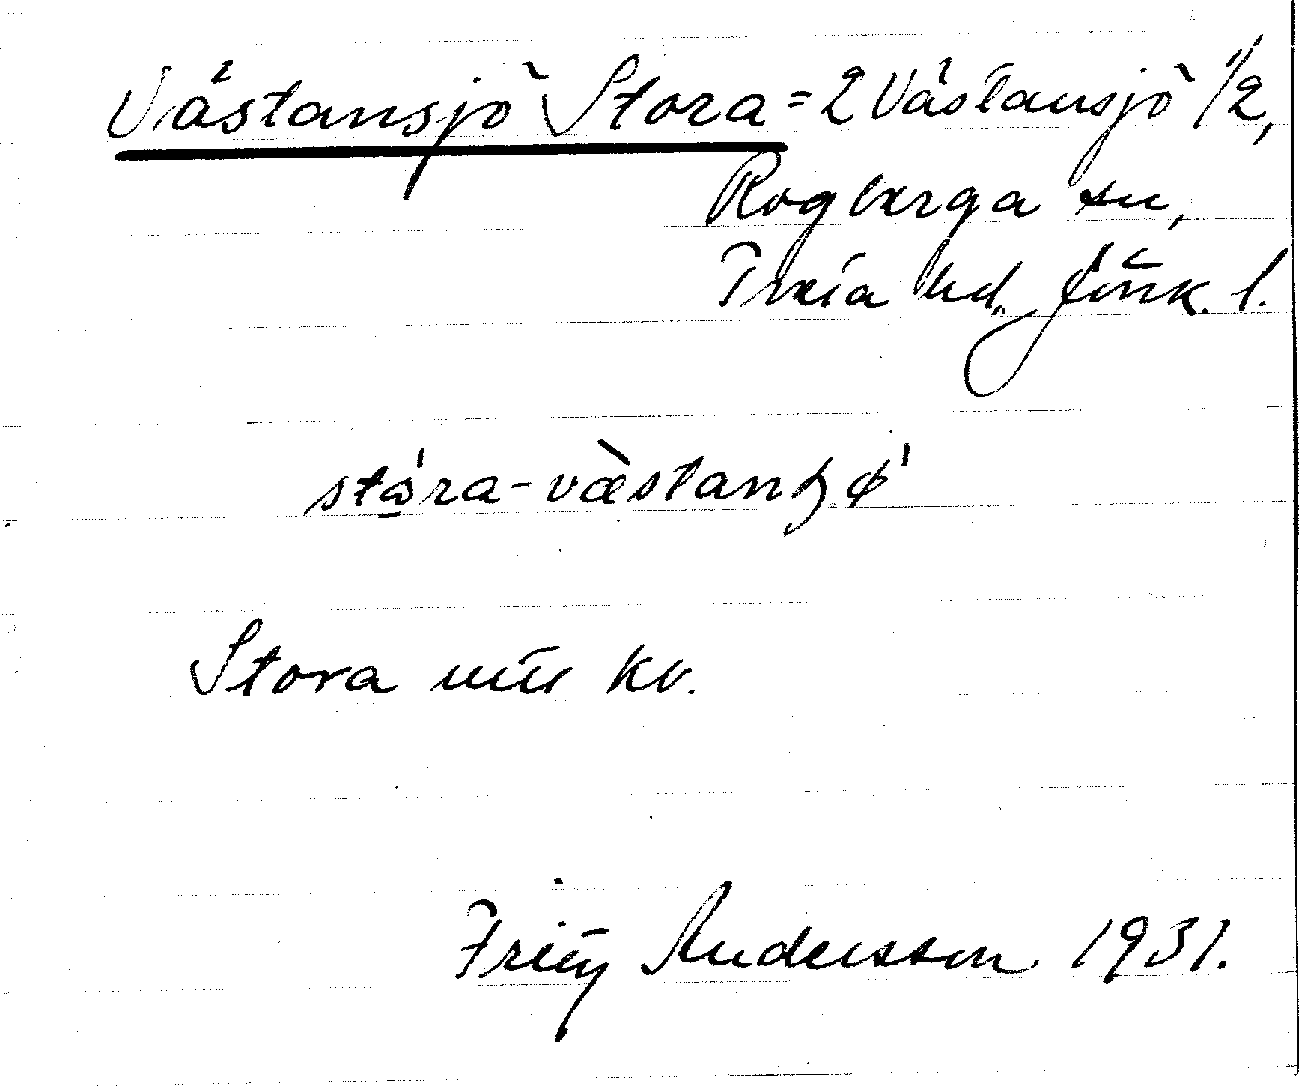 Västansjö Stora = 2 Västansjö 1/2,
Rogberga sn,
Tveta hd. Jönk. l.
stå̀ra-væ̀stanɧø̀
Stora utt kv.
Fritz Andersson 1931.